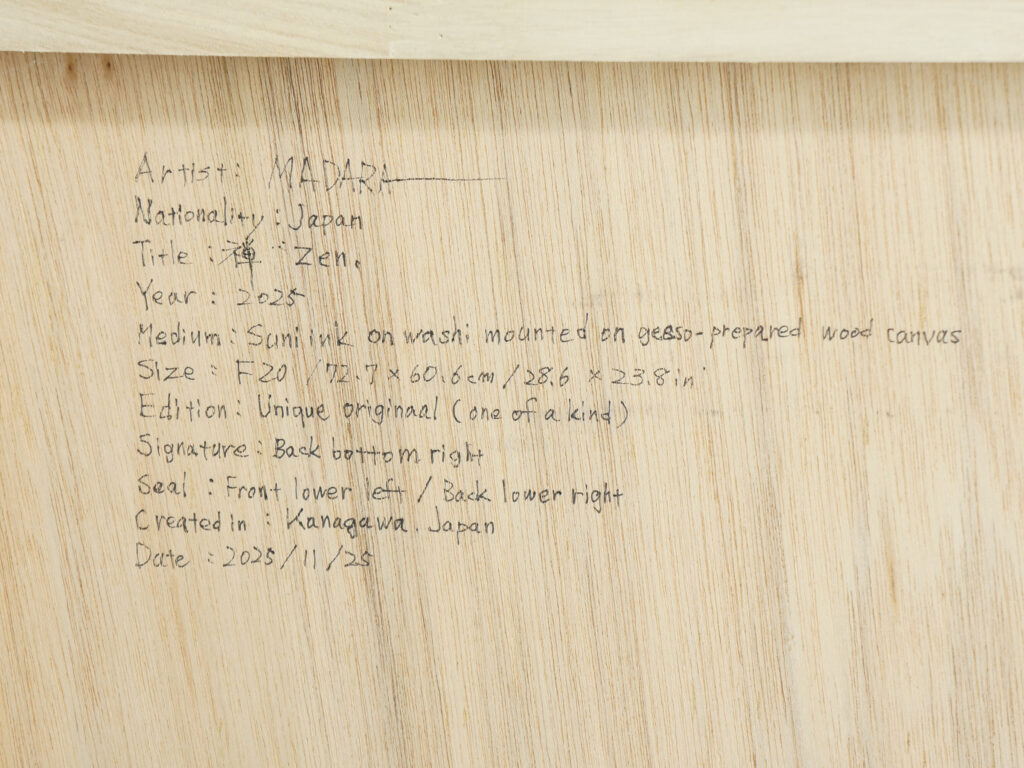 Artist: MADARA
Nationality: Japan
Title: 禅 "Zen.
Year: 2025
Medium: Sumi ink on washi mounted on gesso-prepared wood canvas
Size: F20 / 72.7 × 60.6cm / 28.6 × 23.8in
Edition: Unique originaal (one of a kind)
Signature: Back bottom right
Seal : Front lower left / Back lower right
Created in : Kanagawa. Japan
Date : 2025/11/25